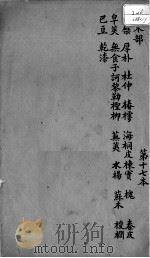 第十七本
木部
厚朴 杜仲 椿樗 海桐皮 楝實 槐 秦皮
皁莢 無食子 訶黎勒 檉柳 蕪荑 水楊 蘇木 椶櫚
巴豆 乾漆